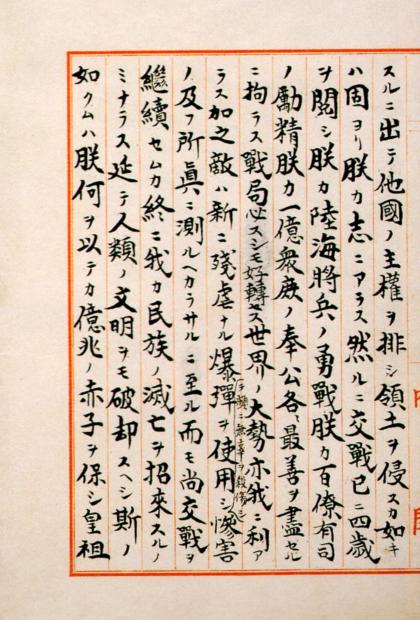 スルニ出テ他國ノ主權ヲ排シ領土ヲ侵スカ如キ
ハ固ヨリ朕カ志ニアラス然ルニ交戰已ニ四歲
ヲ閱シ朕カ陸海將兵ノ勇戰朕カ百僚有司
ノ勵精朕カ一億衆庶ノ奉公各〻最善ヲ盡セル
ニ拘ラス戰局必スシモ好轉セス世界ノ大勢亦我ニ利ア
ラス加之敵ハ新ニ殘虐ナル爆彈ヲ使用シテ頻ニ無辜ヲ殺傷シ慘害
ノ及フ所眞ニ測ルヘカラサルニ至ル而モ尚交戰ヲ
繼續セムカ終ニ我カ民族ノ滅亡ヲ招來スルノ
ミナラス延テ人類ノ文明ヲモ破却スヘシ斯ノ
如クムハ朕何ヲ以テカ億兆ノ赤子ヲ保シ皇祖